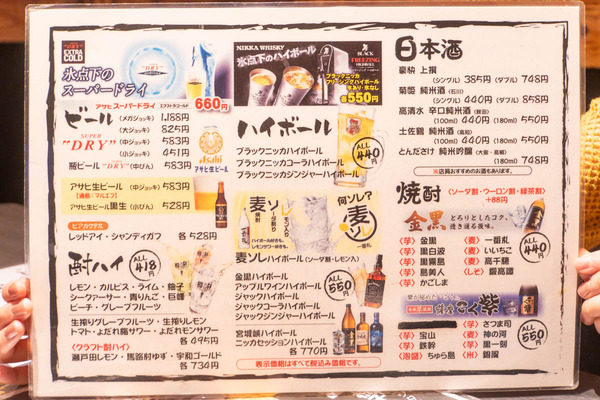 SUPER "DRY"
EXTRA COLD
氷点下の
スーパードライ
アサヒスーパードライ エクストラコールド 660円
ビール
SUPER "DRY"
(メガジョッキ) 1,188円
(大ジョッキ) 825円
(中ジョッキ) 583円
(小ジョッキ) 451円
瓶ビール "DRY" (中びん) 583円
Asahi
アサヒ生ビール
アサヒ生ビール (中ジョッキ) 583円
【通称:マルエフ】
アサヒ生ビール黒生 (小びん) 528円
ビアカクテル
レッドアイ・シャンディガフ 各528円
酎ハイ
ALL 418円
レモン・カルピス・ライム・柚子
シークァーサー・青りんご・巨峰
ピーチ・グレープフルーツ
生搾りグレープフルーツ・生搾りレモン
トマト・よだれ鶏サワー・よだれモンサワー
各495円
〈クラフト酎ハイ〉
瀬戸田レモン・馬路村ゆず・宇和ゴールド
各734円
NIKKA WHISKY
氷点下のハイボール
BLACK
FREEZING
HIGHBALL
ブラックニッカ
フリージングハイボール
氷あり・氷なし
各550円
ハイボール
ALL 440円
ブラックニッカハイボール
ブラックニッカコーラハイボール
ブラックニッカジンジャーハイボール
麦焼酎
ソーダ割り
レモン入り
何ソレ?
麦ソ
一番札
麦ソレハイボール (ソーダ割・レモン入)
金黒ハイボール
アップルワインハイボール
ジャックハイボール
ジャックコーラハイボール
ジャックジンジャーハイボール
ALL 550円
宮城峡ハイボール
ニッカセッションハイボール
各770円
表示価格はすべて税込み価格です。
日本酒
豪快 上撰
(シングル) 385円 (ダブル) 748円
菊姫 純米酒 (石川)
(シングル) 440円 (ダブル) 858円
高清水 辛口純米酒 (秋田)
(100ml) 440円 (180ml) 550円
土佐鶴 純米酒 (高知)
(100ml) 440円 (180ml) 550円
とんださけ 純米吟醸 (大阪・高槻)
(180ml) 748円
※店員おすすめのお酒もあります。
焼酎
(ソーダ割・ウーロン割・緑茶割)
+88円
金黒
とろりとしたコク。
透き通る後味。
〈芋〉金黒 〈麦〉一番札
〈芋〉黒白波 〈麦〉いいちこ
〈芋〉黒霧島 〈麦〉高千穂
〈芋〉島美人 〈しそ〉鍛高譚
〈芋〉かごしま
ALL 440円
薩摩こく紫
〈芋〉さつま司
〈芋〉宝山 〈麦〉神の河
〈芋〉鉄幹 〈芋〉黒一刻
〈泡盛〉ちゅら島 〈米〉銀龍
ALL 550円